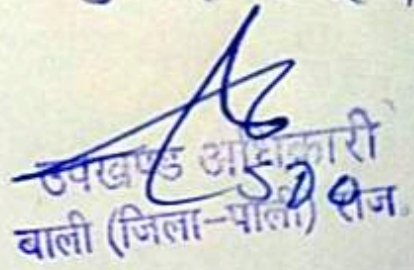 उपखण्ड अधिकारी
SDO
बाली (जिला-पाली) राज.